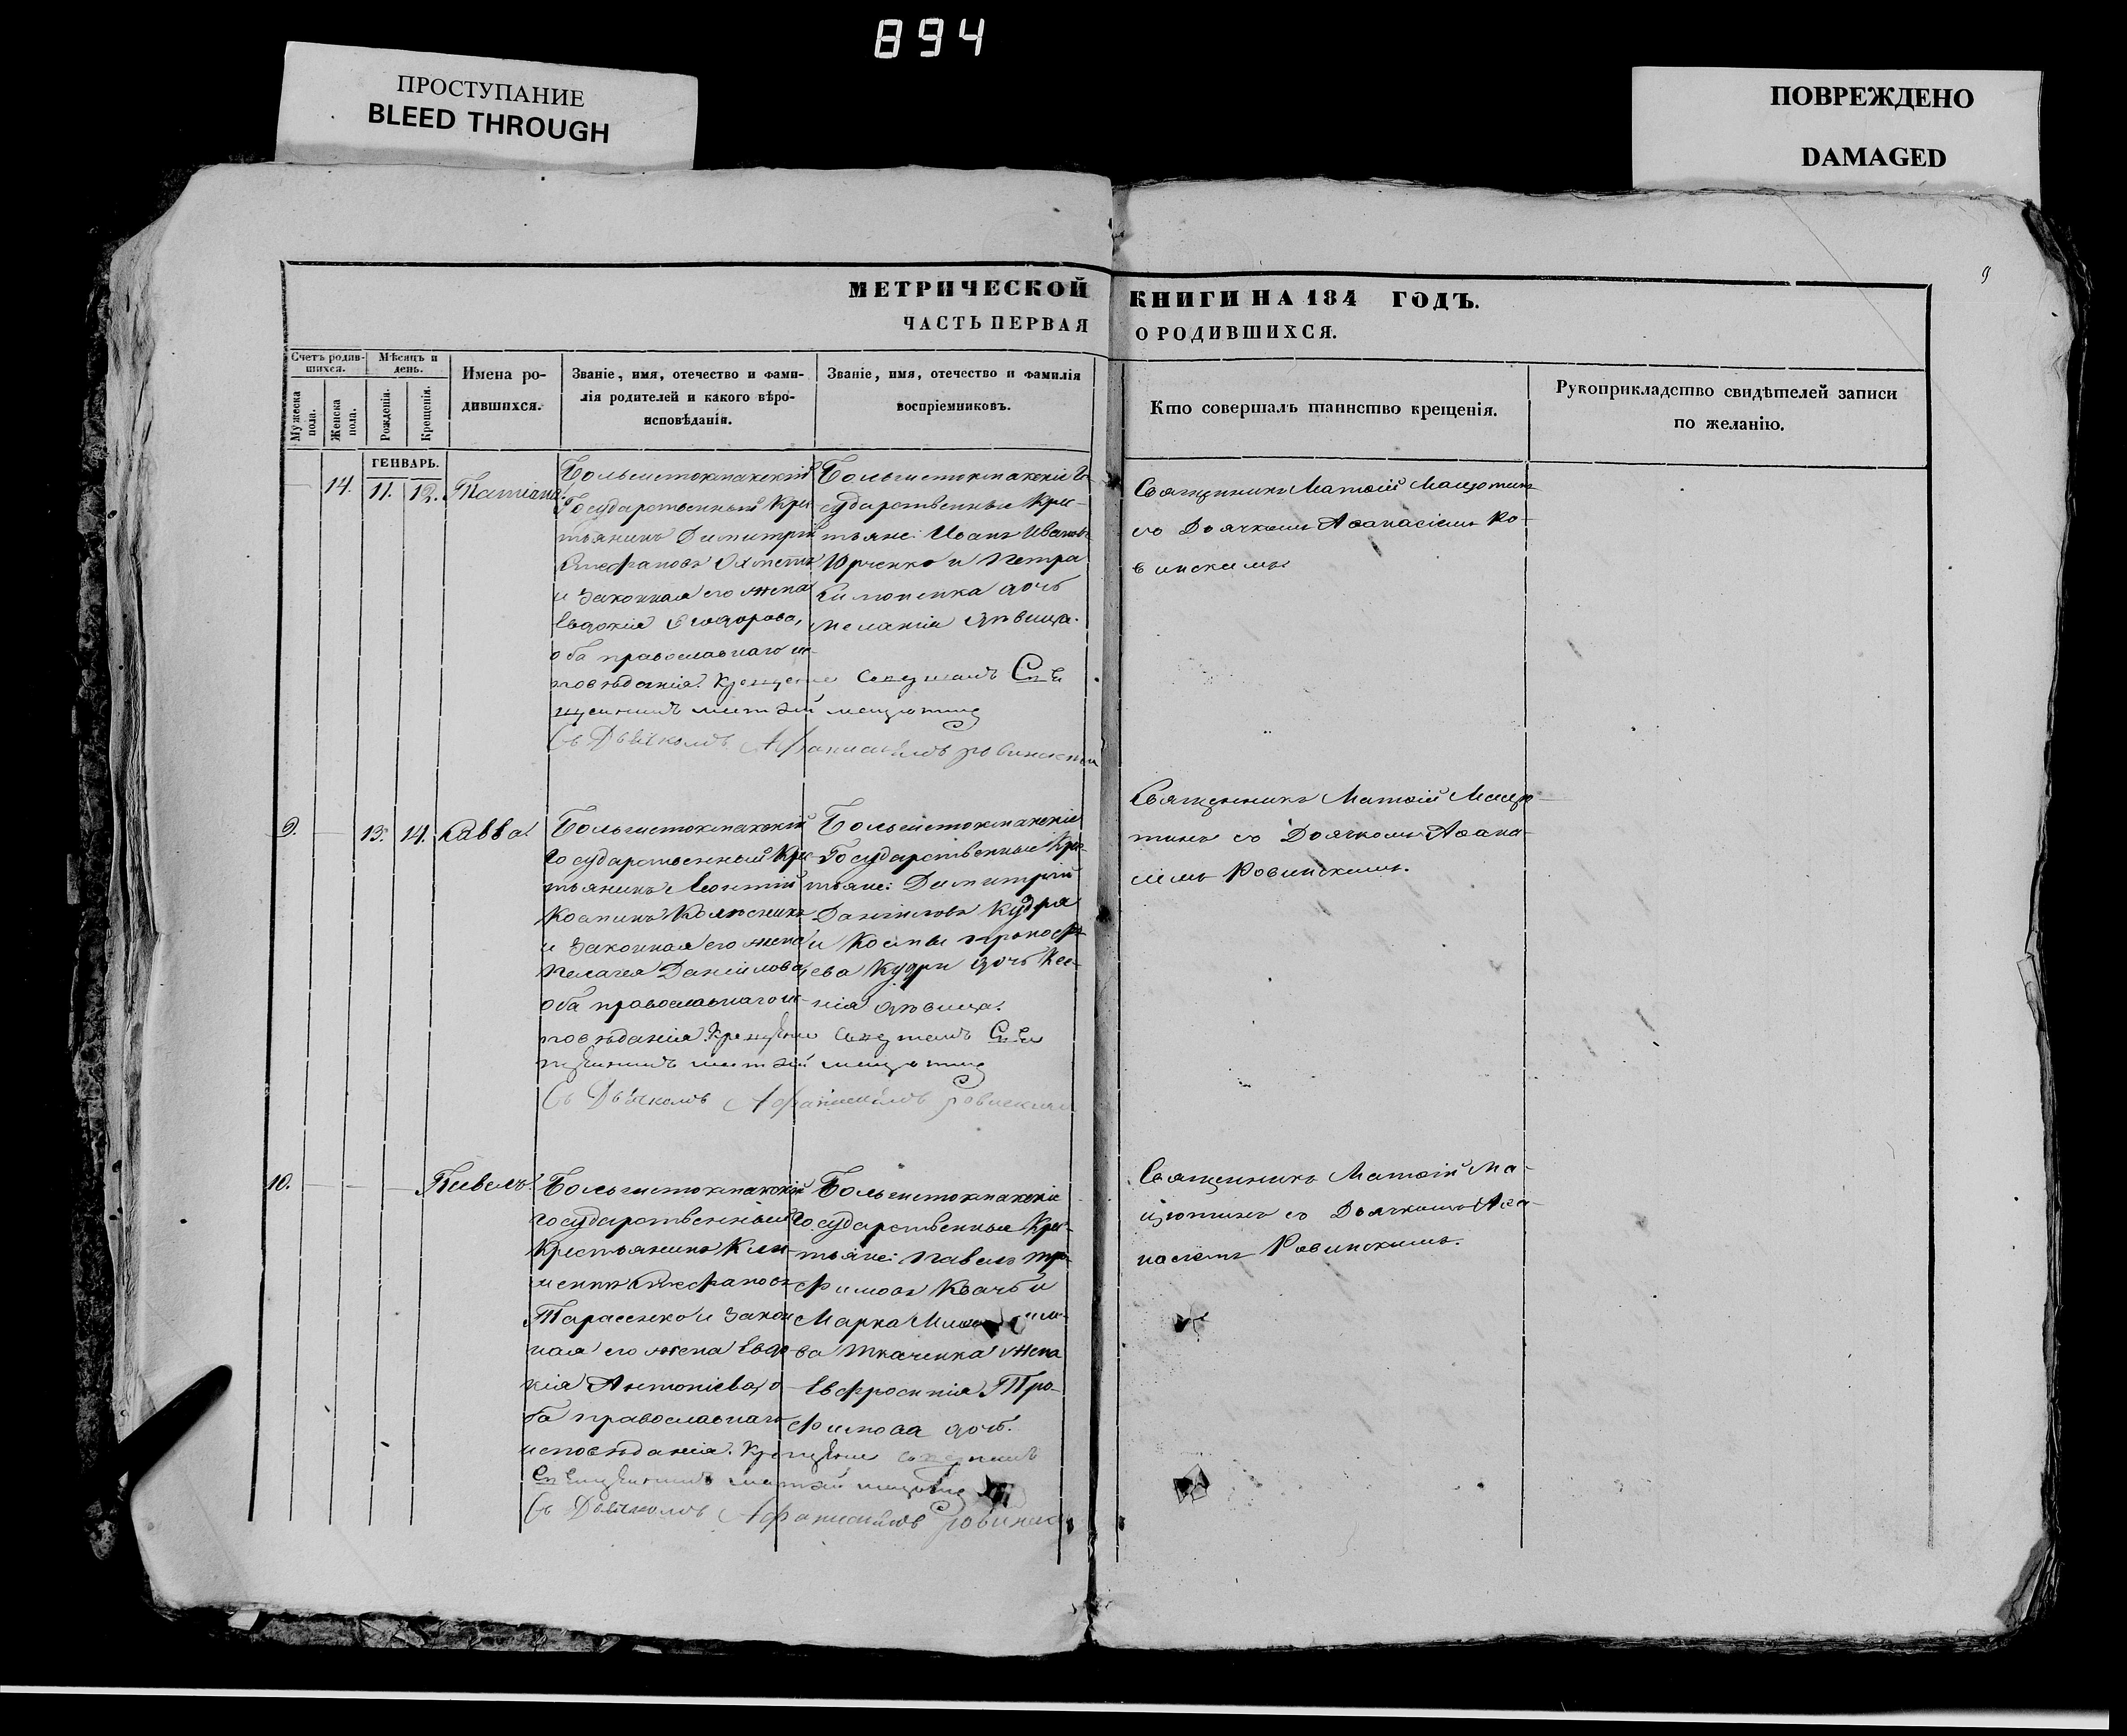 894
ПРОСТУПАНИЕ
BLEED THROUGH
ПОВРЕЖДЕНО
DAMAGED
9
МЕТРИЧЕСКОЙ КНИГИ НА 184 ГОДЪ.
ЧАСТЬ ПЕРВАЯ О РОДИВШИХСЯ.
Счетъ родив-
шихся.
Мужеска пола.
Женска пола.
Мѣсяцъ и
день.
Рожденія.
Крещенія.
Имена ро-
дившихся.
Званіе, имя, отечество и фами-
лія родителей и какого вѣро-
исповѣданія.
Званіе, имя, отечество и фамилія
воспріемниковъ.
Кто совершалъ таинство крещенія.
Рукоприкладство свидѣтелей записи
по желанію.
ГЕНВАРЬ.
14. 11. 12. Татіана
Большетокмакскій
Государственный Кре
тьянинъ Димитрій
Стефановъ
и законная его жена
Евдокія Ѳеодорова,
оба православнаго ис-
повѣданія. Крещеніе совершалъ Свя
щенникъ Матѳій Мацютинъ
Съ Дьячкомъ Афанасіемъ Ровинским
Большетокмакскіе Го
сударственные Крес-
тьяне: Иванъ Ивановъ
Юрченко и Петра
дочь
Меланія дѣвица.
Священникъ Матѳій Мацютинъ
со Дьячкомъ Аѳанасіемъ Ро-
винскимъ
9. 13. 14. Савва
Большетокмакскій
Государственный Крес
тьянинъ Леонтій
Косминъ Колѣсникъ
и законная его жена
Пелагея Даніилова,
оба православнаго ис-
повѣданія. Крещеніе совершалъ Свя
щенникъ Матѳій Мацютинъ
Съ Дьячкомъ Афанасіемъ Ровинским
Большетокмакскіе
Государственные Крес-
тьяне: Димитрій
Даніиловъ Кудря
и Космы Прокофі
ева Кудри дочь Ксе-
нія дѣвица.
Священникъ Матѳій Мацю-
тинъ со Дьячкомъ Аѳана-
сіемъ Ровинскимъ.
10. Павелъ
Большетокмакскій
Государственный
Крестьянинъ Кли-
ментъ Стефановъ
Тарасенко и закон
ная его жена Евдо
кія Антоніева, о-
ба православнаго
исповѣданія. Крещеніе совершалъ
Священникъ Матѳій Мацютинъ
Съ Дьячкомъ Афанасіемъ Ровинск
Большетокмакскіе
Государственные Крес-
тьяне: Павелъ Тро-
фимовъ Квачъ и
Марка
ва Ткаченка жена
Евфросинія Тро-
фимова дочь.
Священникъ Матѳій Ма-
цютинъ со Дьячкомъ Аѳа-
насіемъ Ровинскимъ.